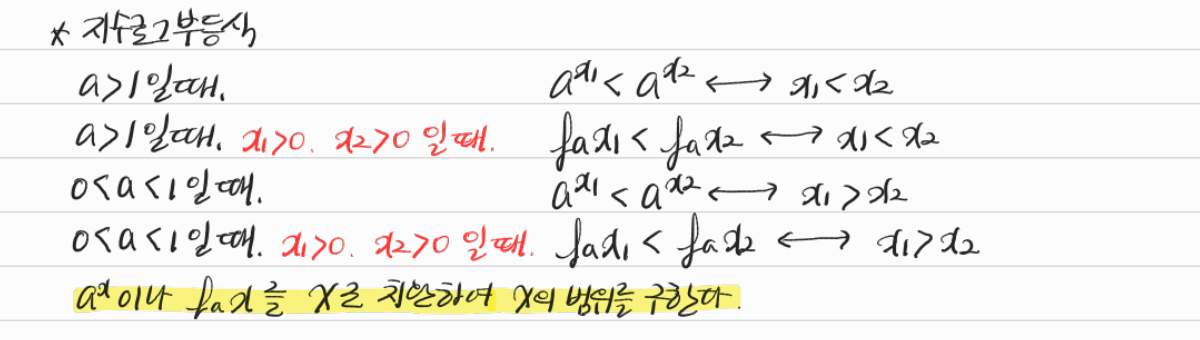 * 지수로그부등식
a>1일때. a^x₁ < a^x₂ ⟷ x₁ < x₂
a>1일때. x₁>0. x₂>0 일때. logₐx₁ < logₐx₂ ⟷ x₁ < x₂
0<a<1일때. a^x₁ < a^x₂ ⟷ x₁ > x₂
0<a<1일때. x₁>0. x₂>0 일때. logₐx₁ < logₐx₂ ⟷ x₁ > x₂
a^x이나 logₐx를 X로 치환하여 X의 범위를 구한다.